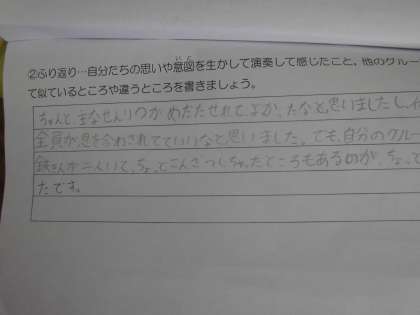 ②ふり返り…自分たちの思いや意図を生かして演奏して感じたこと、他のグルー
て似ているところや違うところを書きましょう。
ちゃんと、主なせんりつが めだたせれて、よかったなと思いました し、
全員が息を合わされてていいなと思いました。でも、自分のグルー
鉄きんが二人いて、ちょっとこんざつしちゃったところもあるのが、ちょっ
たです。